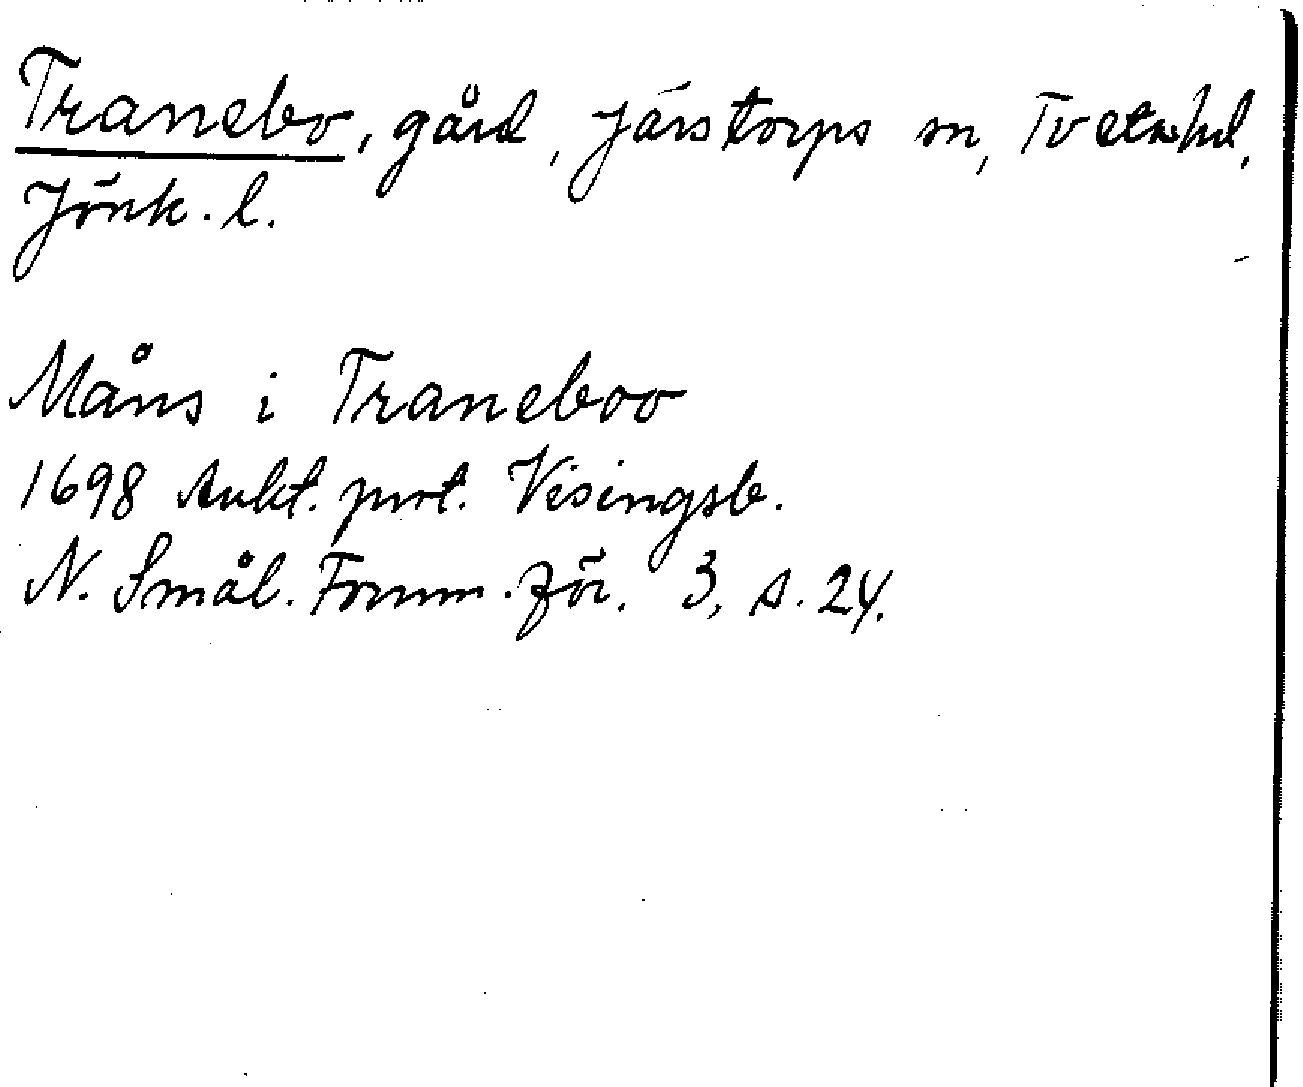 Tranebo, gård, Järstorps sn, Tvetahd,
Jönk. l.
Måns i Traneboo
1698 Aukt. prot. Visingsb.
N. Smål. Fornm. för. 3, s. 24.